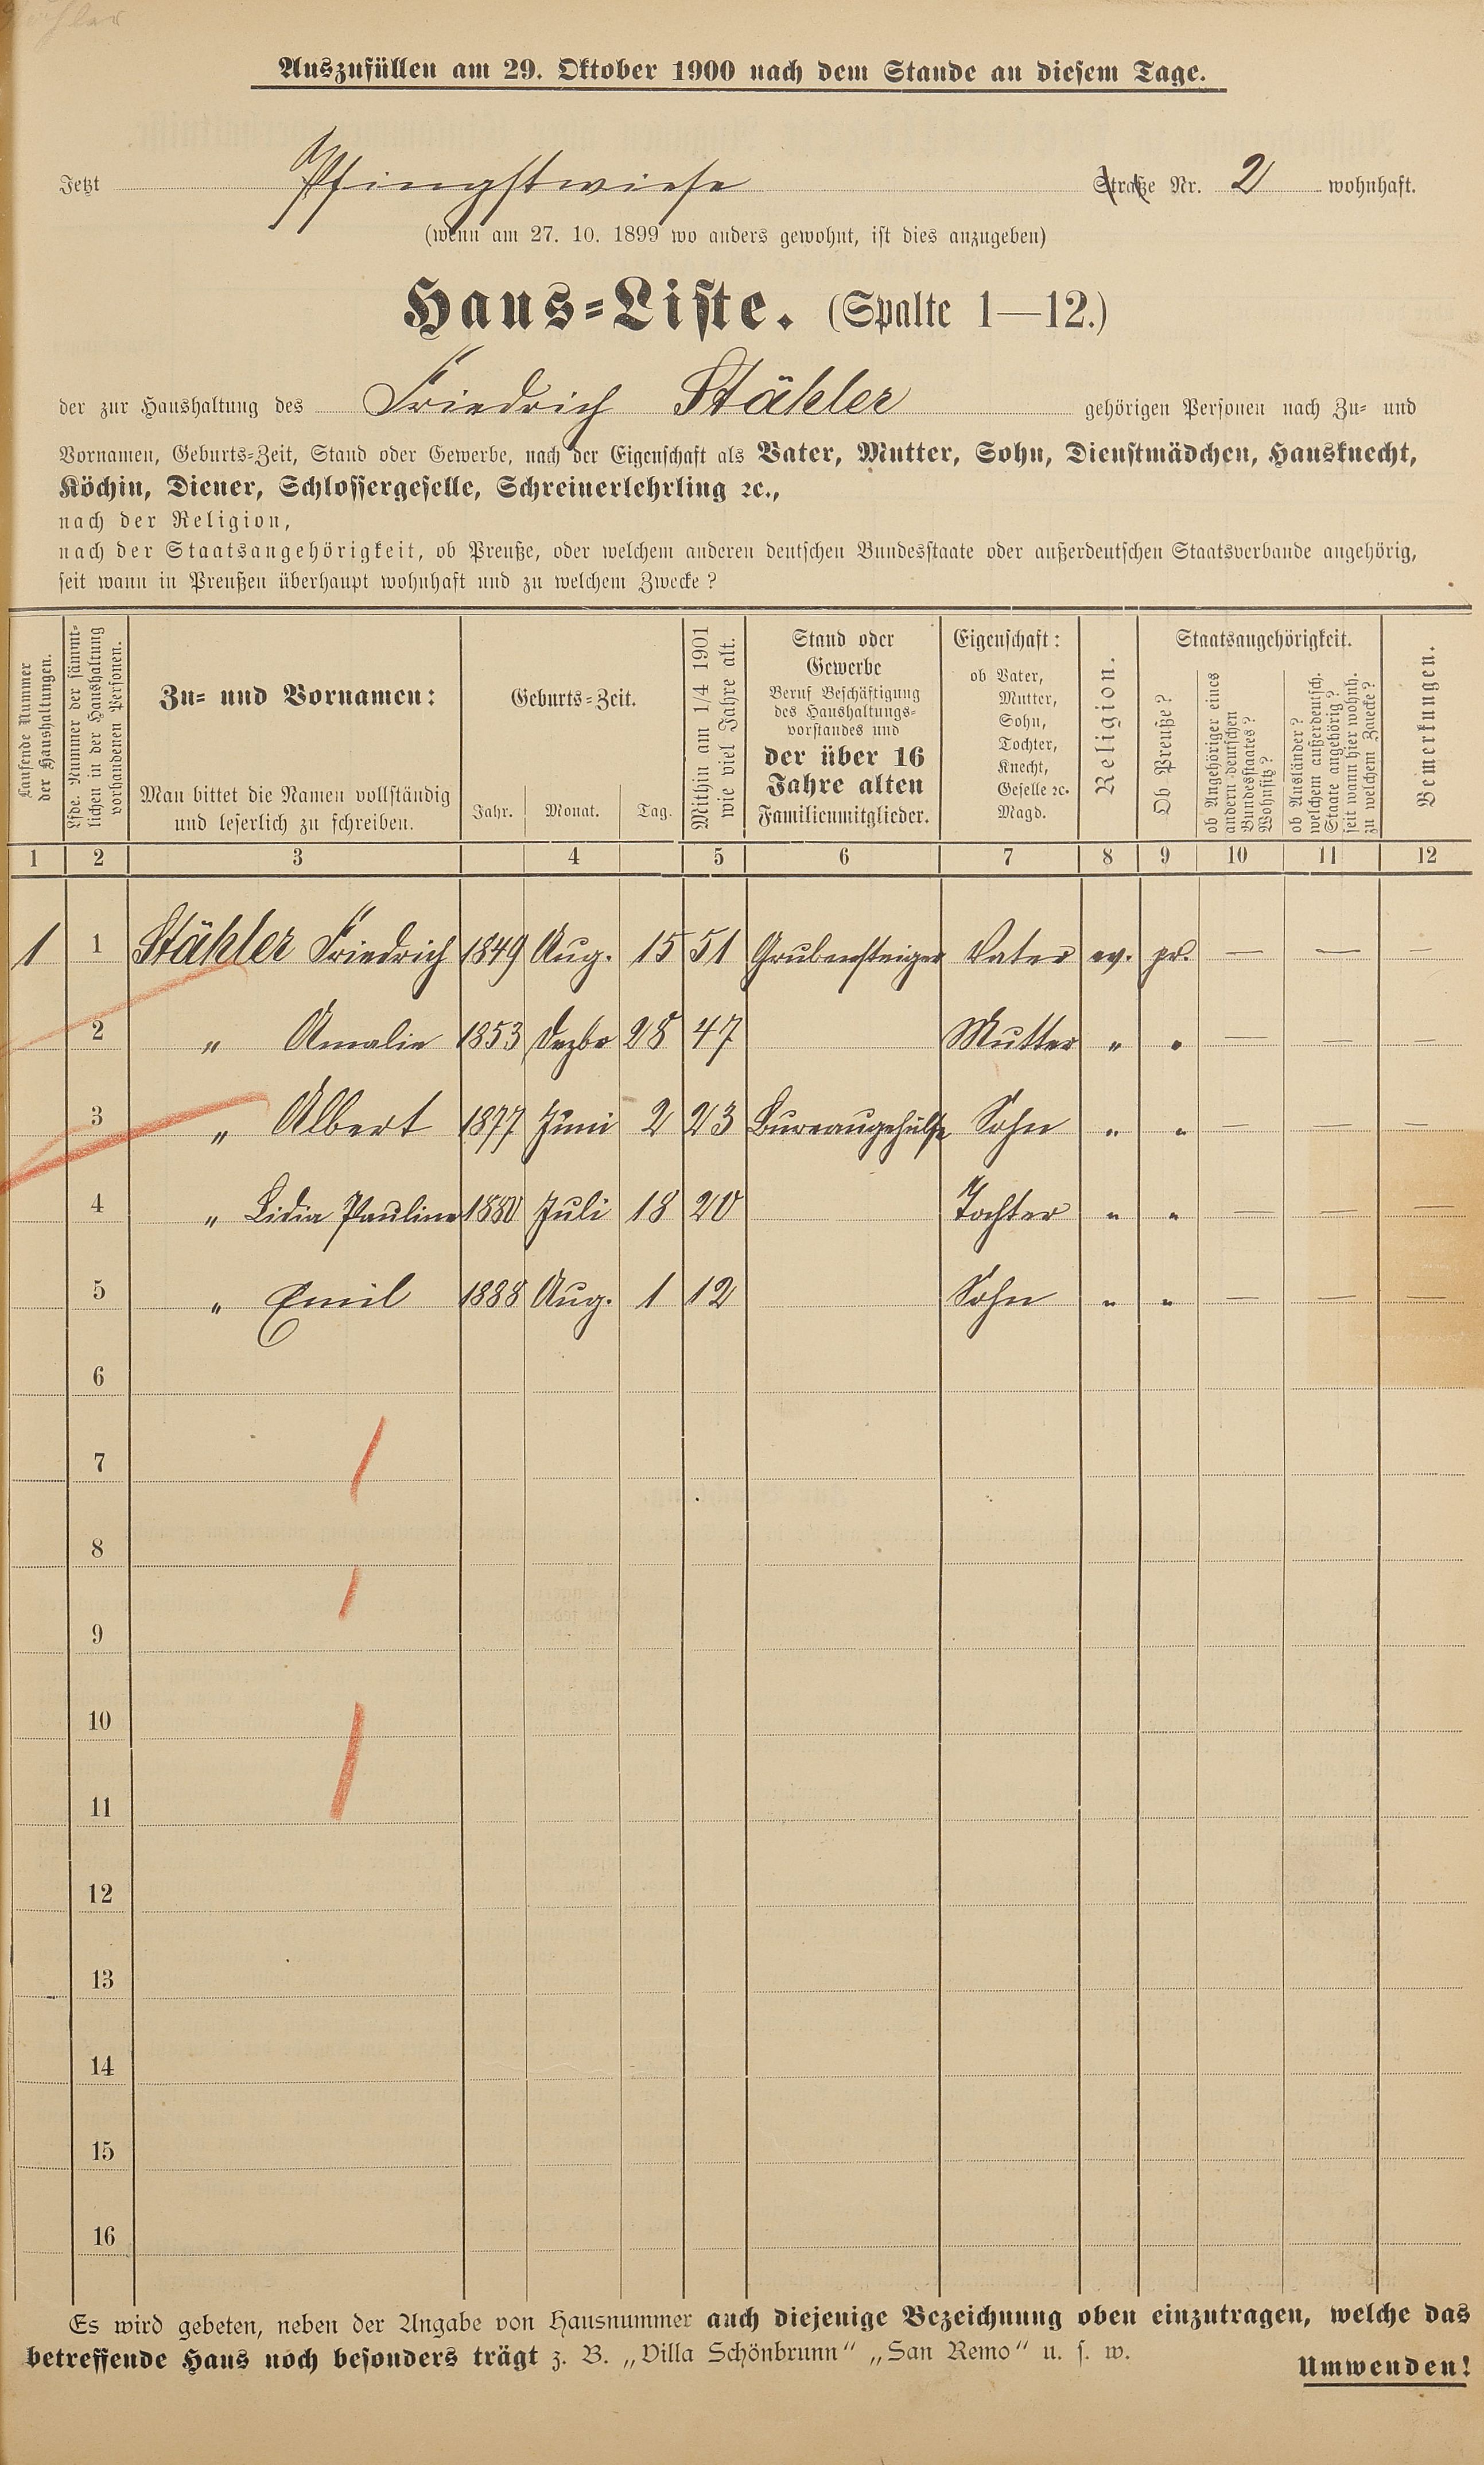 Auszufüllen am 29. Oktober 1900 nach dem Stande an diesem Tage.
Jetzt Pfingstwiese Straße Nr. 2 wohnhaft.
(wenn am 27. 10. 1899 wo anders gewohnt, ist dies anzugeben)
Haus-Liste. (Spalte 1—12.)
der zur Haushaltung des Friedrich Stähler gehörigen Personen nach Zu- und
Vornamen, Geburts-Zeit, Stand oder Gewerbe, nach der Eigenschaft als Vater, Mutter, Sohn, Dienstmädchen, Hausknecht,
Köchin, Diener, Schlossergeselle, Schreinerlehrling ꝛc.,
nach der Religion,
nach der Staatsangehörigkeit, ob Preuße, oder welchem anderen deutschen Bundesstaate oder außerdeutschen Staatsverbande angehörig,
seit wann in Preußen überhaupt wohnhaft und zu welchem Zwecke?
Laufende Nummer
der Haushaltungen.
Lfde. Nummer der sämmt-
lichen in der Haushaltung
vorhandenen Personen.
Zu- und Vornamen:
Man bittet die Namen vollständig
und leserlich zu schreiben.
Geburts-Zeit.
Jahr. Monat. Tag.
Mithin am 1/4 1901
wie viel Jahre alt.
Stand oder
Gewerbe
Beruf Beschäftigung
des Haushaltungs-
vorstandes und
der über 16
Jahre alten
Familienmitglieder.
Eigenschaft:
ob Vater,
Mutter,
Sohn,
Tochter,
Knecht,
Geselle ꝛc.
Magd.
Religion.
Staatsangehörigkeit.
Ob Preuße?
ob Angehöriger eines
andern deutschen
Bundesstaates?
Wohnsitz?
ob Ausländer?
welchem außerdeutsch.
Staate angehörig?
seit wann hier wohnh.
zu welchem Zwecke?
Bemerkungen.
1 2 3 4 5 6 7 8 9 10 11 12
1 1 Stähler Friedrich 1849 Aug. 15 51 Grubensteiger Vater ev. pr. — — —
2 „ Amalie 1853 Dezbr 28 47 Mutter „ „ — — —
3 „ Albert 1877 Juni 2 23 Bureaugehülfe Sohn „ „ — — —
4 „ Lidia Pauline 1880 Juli 18 20 Tochter „ „ — — —
5 „ Emil 1888 Aug. 1 12 Sohn „ „ — — —
6
7
8
9
10
11
12
13
14
15
16
Es wird gebeten, neben der Angabe von Hausnummer auch diejenige Bezeichnung oben einzutragen, welche das
betreffende Haus noch besonders trägt z. B. „Villa Schönbrunn“ „San Remo“ u. s. w.
Umwenden!